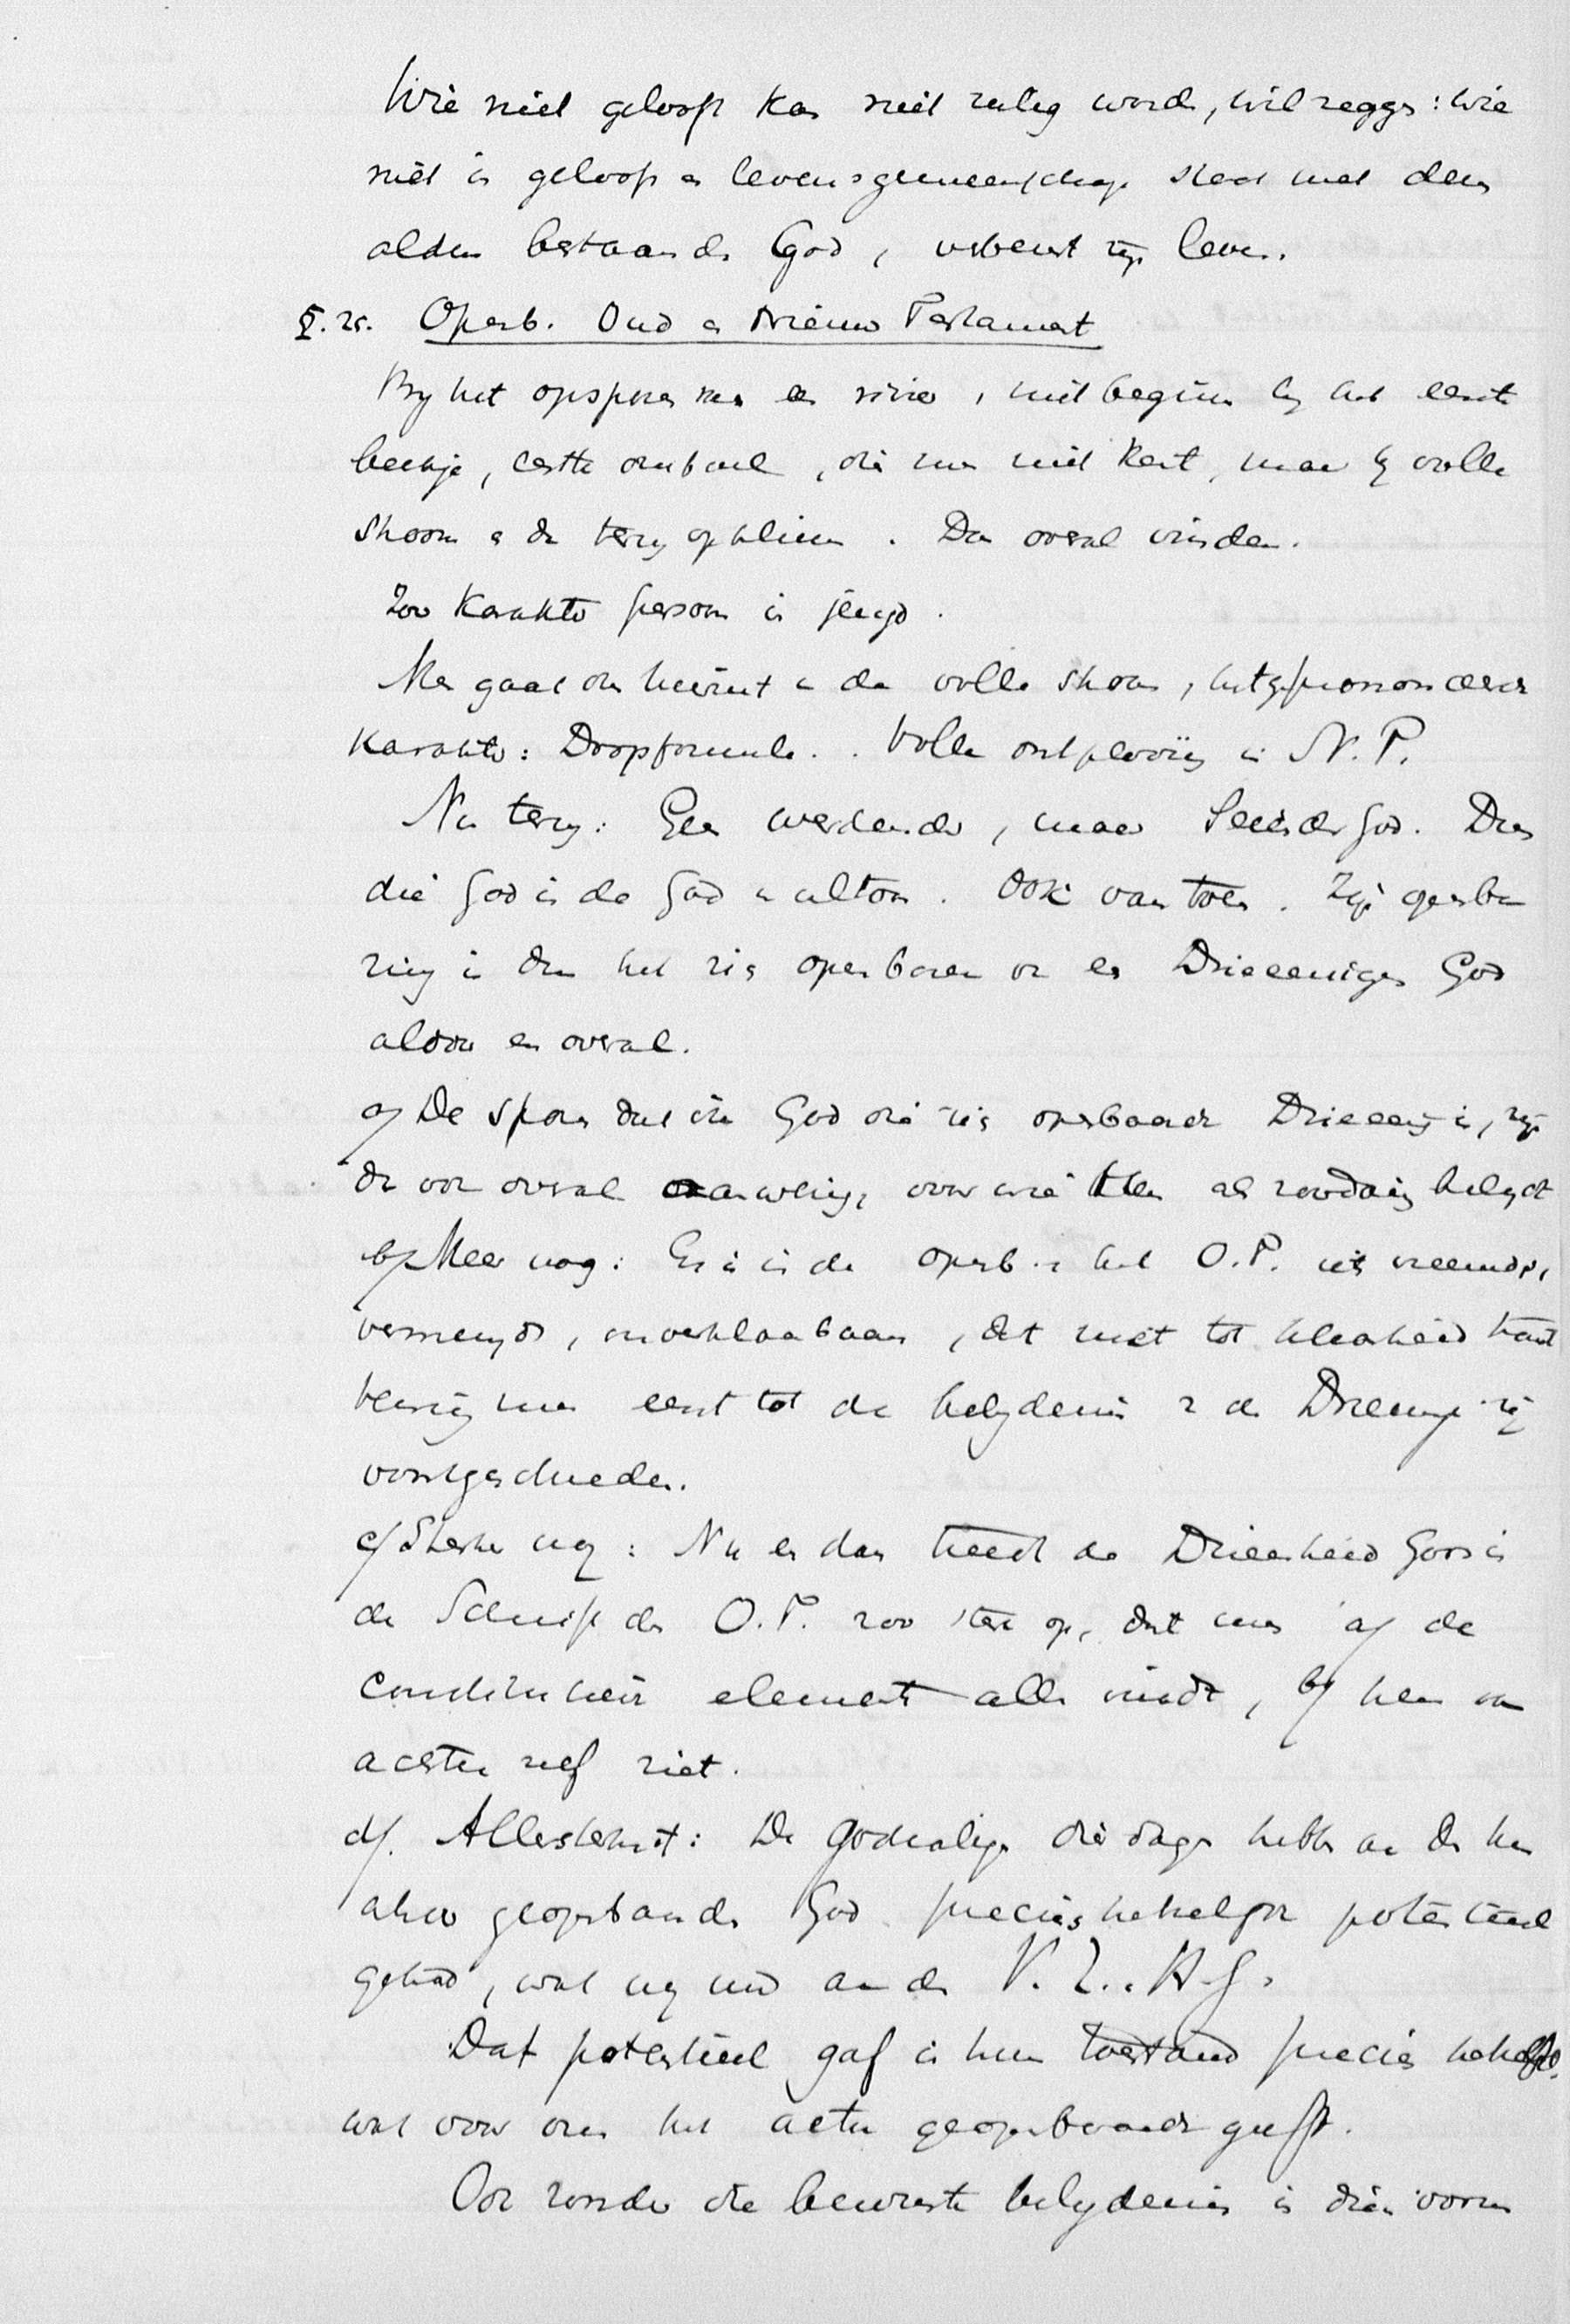 Wie niet gelooft kan niet zalig worden, wil zeggen: wie
niet in geloof en levensgemeenschap staat met den
aldus bestaanden God, verbeurt zijn leven.
§. 25. Openb. Oud en Nieuw Testament
By het opsporen van een rivier, niet beginnen by het eerste
beekje, die men niet kent, maar by volle
stroom en dan terug opklimmen. Dan overal vinden.
Zoo karakter persoon in jeugd.
Men gaat dus hier uit van de volle stroom, het geprononceerd
karakter: Doopformule. Volle ontplooiing in N. T.
Nu terug: Geen werdender, maar Seiender God. Dus
die God is de God van altoos. Ook van toen. Zijn openba
ring is dus het zich openbaren van een Drieeenigen God
aldoor en overal.
a/ De sporen dat die God die zich openbaart Drieeenig is, zijn
dan ook overal aanwezig, voor wie Hem als zoodanig belydt
b/ Meer nog: Er is in de openb. in het O.T. iets vreemds,
vermengds, onverklaarbaars, dat niet tot klaarheid komt
tenzij men eerst tot de belydenis van de Drieeenige zij
voortgeschreden.
c/ Sterker nog: Nu en dan treedt de Drieenheid Gods in
de Schrift des O.T. zoo sterk op, dat men a/ de
constitutieve elementen alle vindt, b/ hen van
achteren zelf ziet.
d/. Allesterkst: De godzaligen dier dagen hebben aan den hun
alzoo geopenbaarden God precies hetzelfde potentieel
gehad, wat wij nu aan den V. Z. H. G.
Dat potentieel gaf in hun toestand precies hetzelfde,
wat voor ons het actu geopenbaarde geeft.
Ook zonder die bewuste belydenis in dien vorm